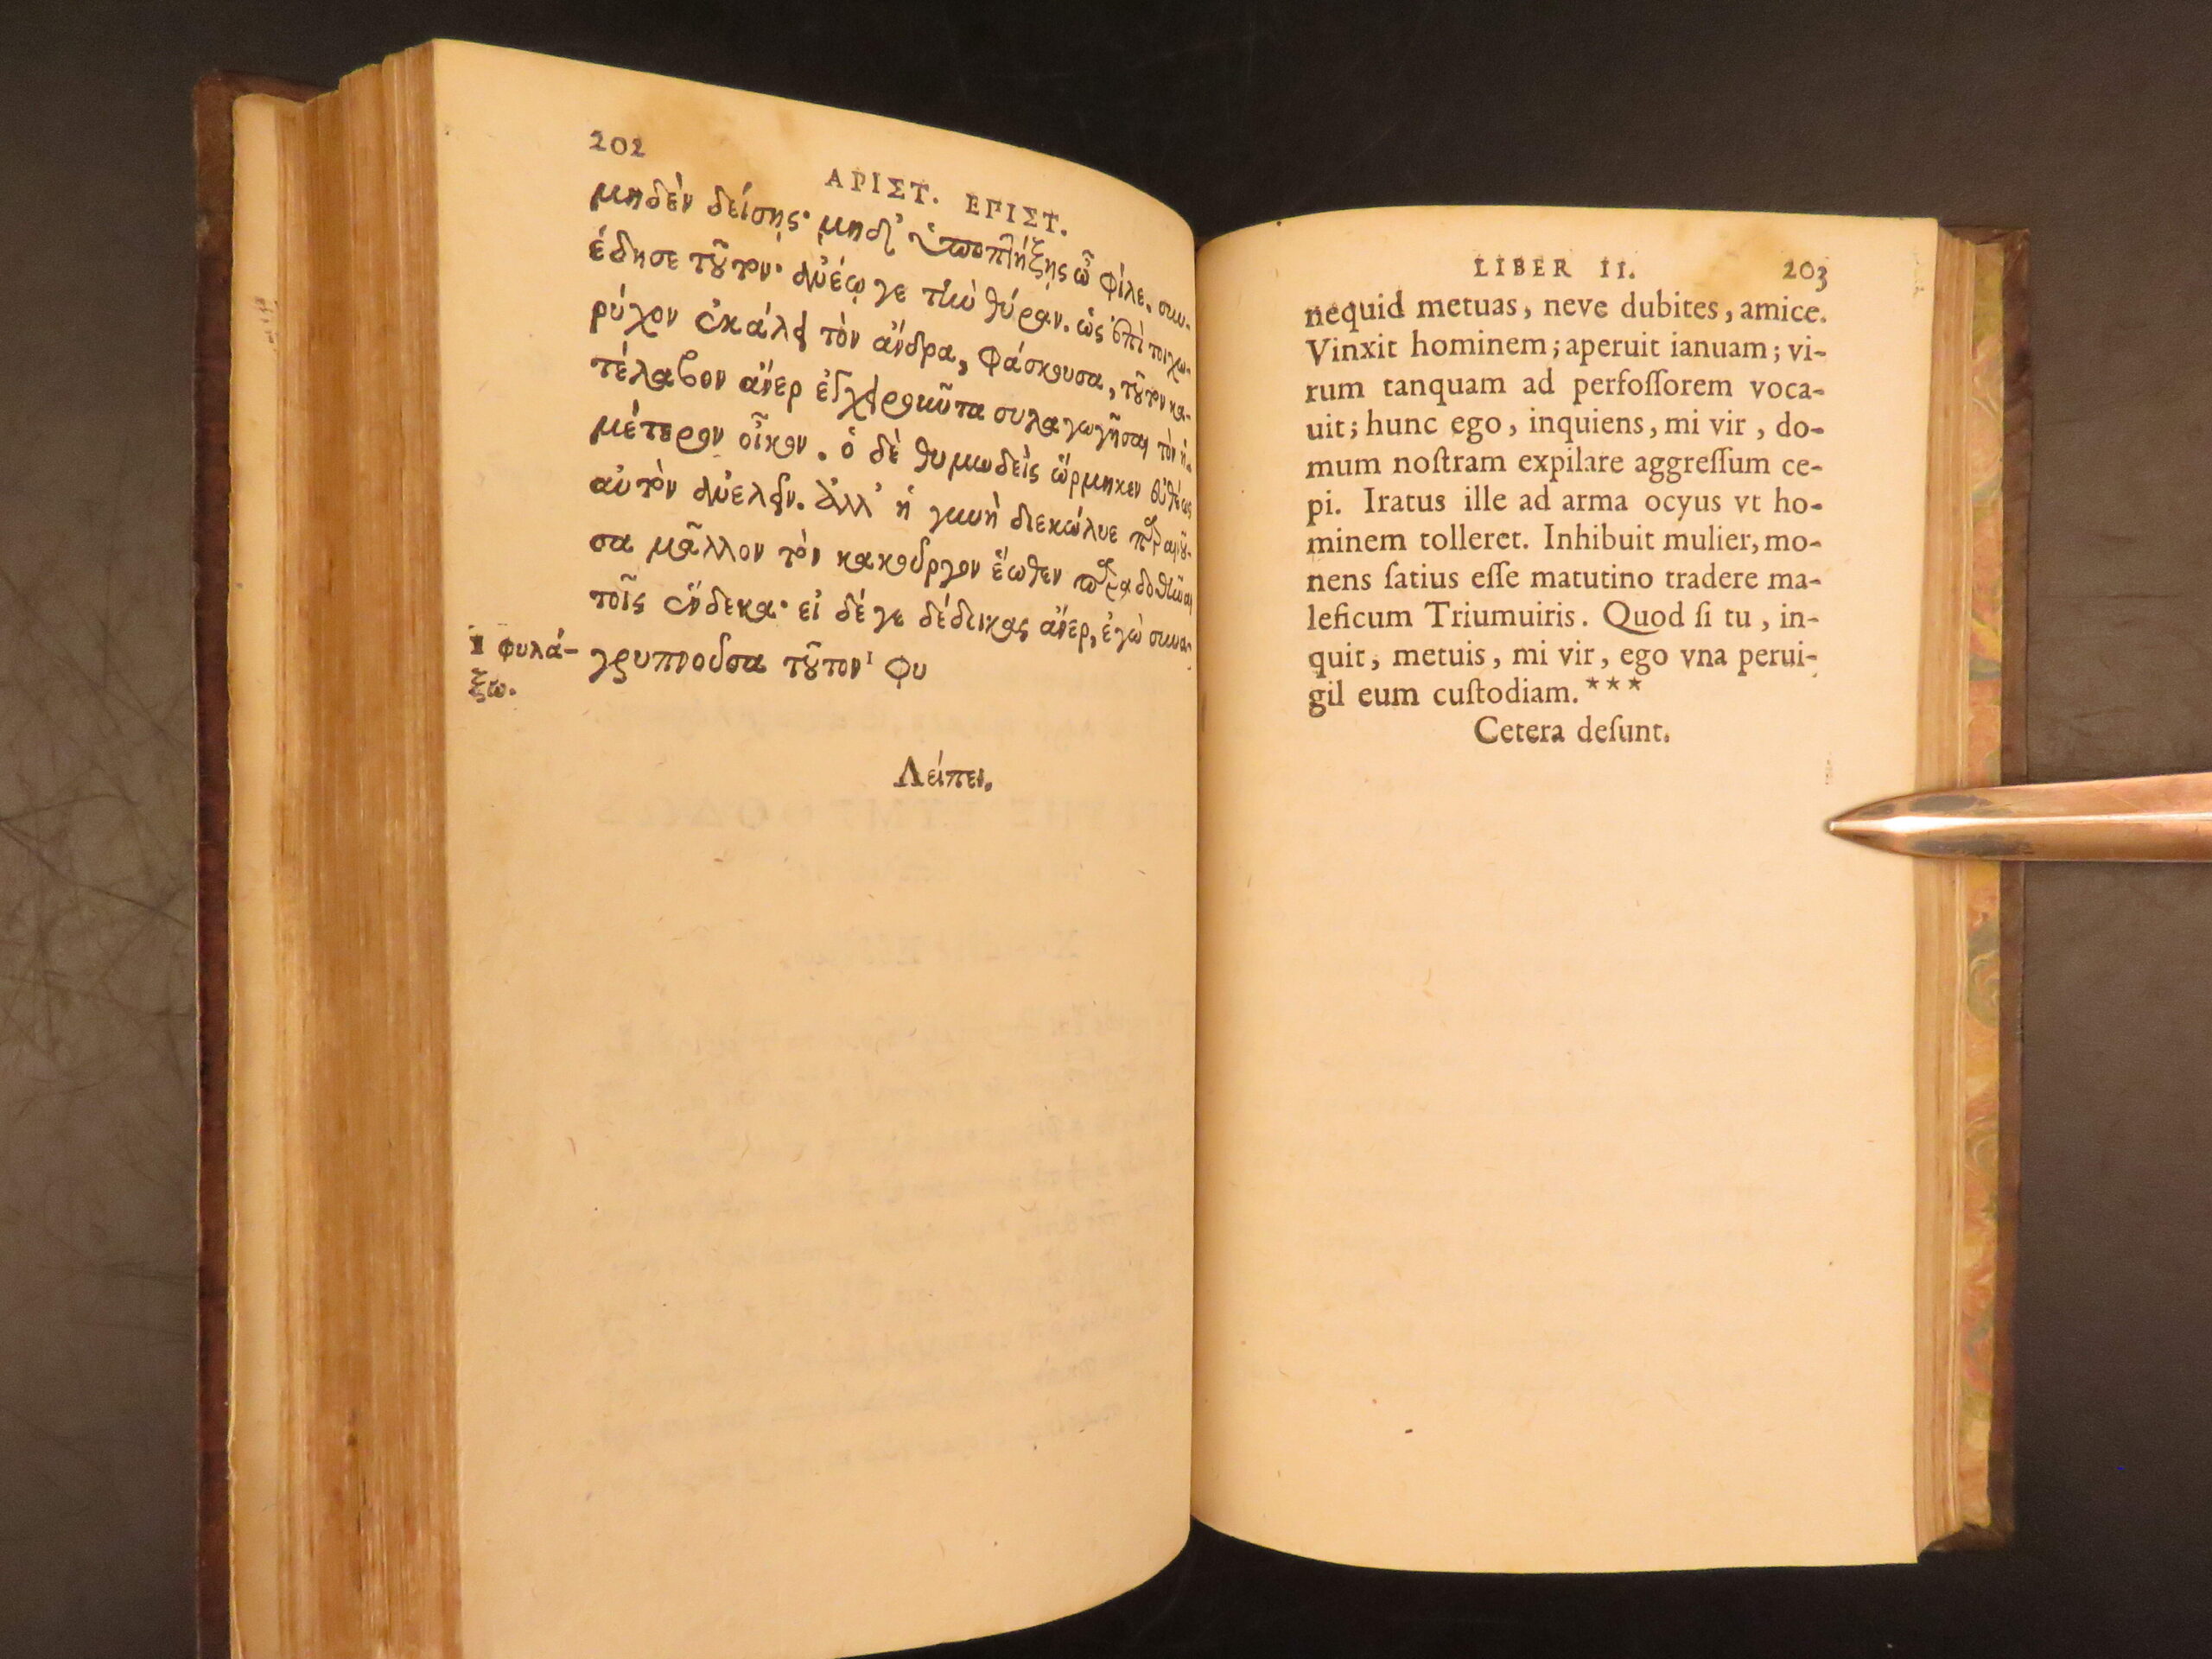 202
ΑΡΙΣΤ. ΕΠΙΣΤ.
μηδὲν δείσῃς· μηδ' ὑποπτήξῃς ὦ φίλε. συν-
έδησε τοῦτον· ἀνέῳγε τὴν θύραν. ὡς ἐπὶ τοιχω-
ρύχον ἐκάλει τὸν ἄνδρα, φάσκουσα, τοῦτον κα-
τέλαβον ἄνερ ἐγχειροῦντα συλαγωγῆσαι τὸν ἡ-
μέτερον οἶκον. ὁ δὲ θυμωδεὶς ὥρμηκεν εὐθέως
αὐτὸν ἀνελεῖν. ἀλλ' ἡ γυνὴ διεκώλυε παραινοῦ-
σα μᾶλλον τὸν κακοῦργον ἕωθεν παραδοθῆναι
τοῖς ἕνδεκα· εἰ δέ γε δέδοικας ἄνερ, ἐγὼ συνα-
γρυπνοῦσα τοῦτον ¹ φυ
1 φυλά-
ξω.
Λείπει.
LIBER II. 203
nequid metuas, neve dubites, amice.
Vinxit hominem; aperuit ianuam; vi-
rum tanquam ad perfoſſorem voca-
uit; hunc ego, inquiens, mi vir, do-
mum noſtram expilare aggreſſum ce-
pi. Iratus ille ad arma ocyus vt ho-
minem tolleret. Inhibuit mulier, mo-
nens ſatius eſſe matutino tradere ma-
leficum Triumuiris. Quod ſi tu, in-
quit, metuis, mi vir, ego vna perui-
gil eum cuſtodiam.***
Cetera deſunt.